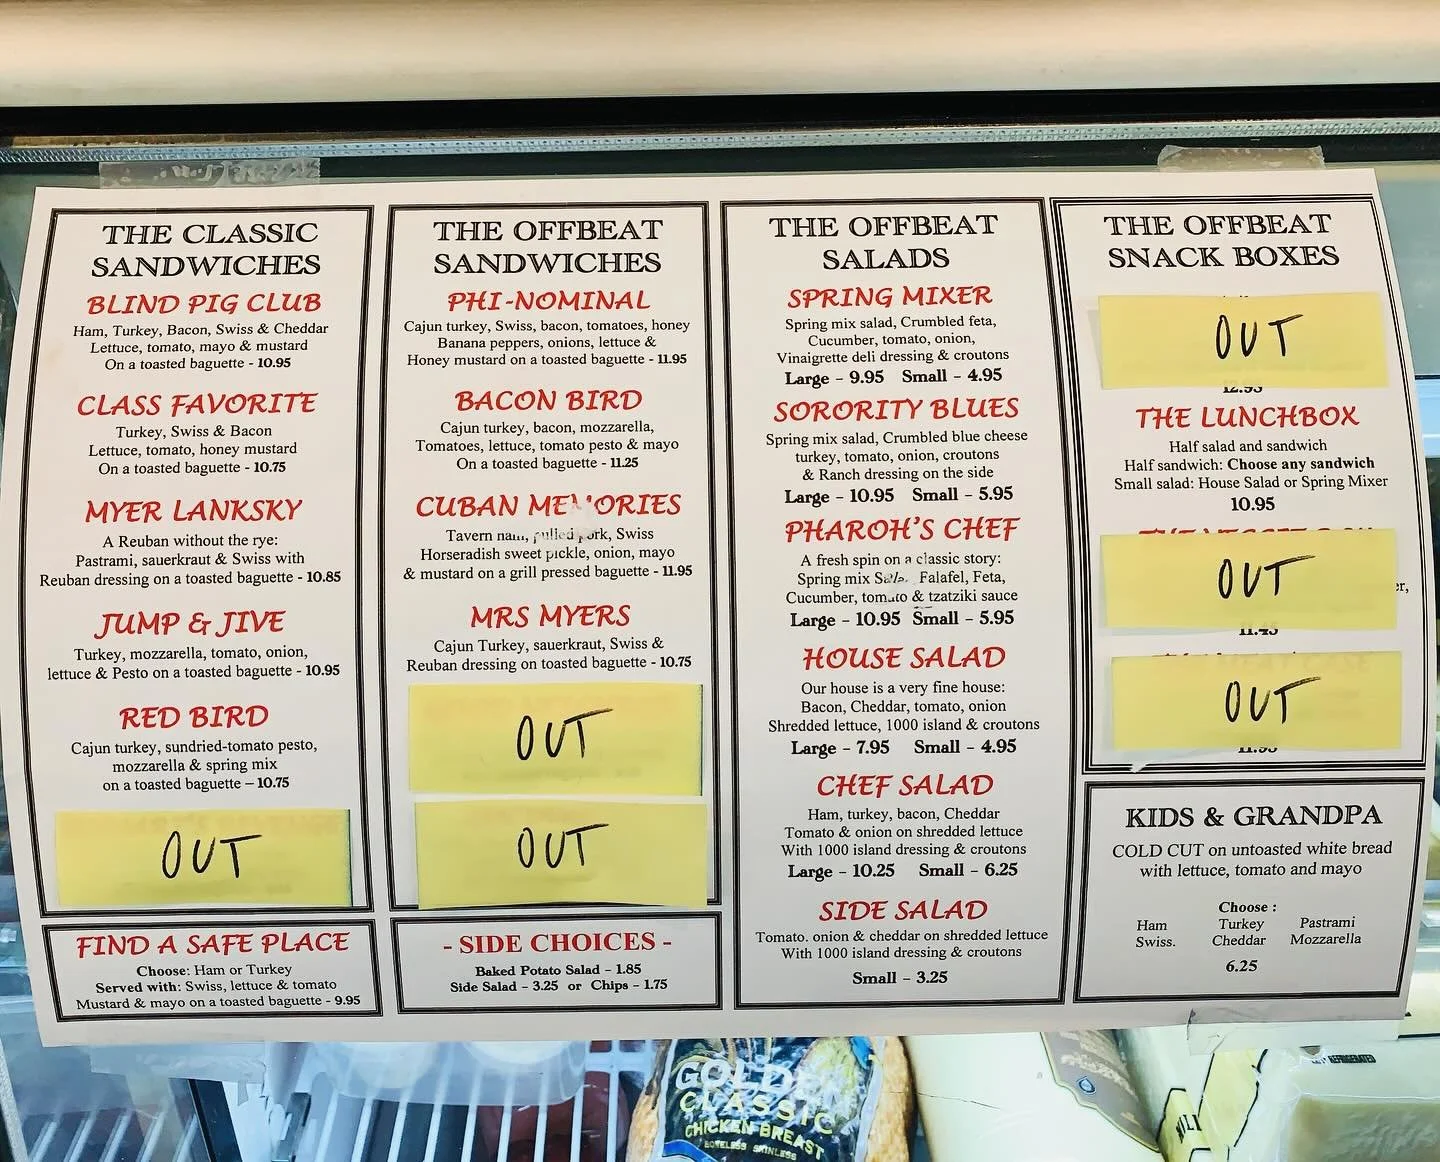 THE CLASSIC
SANDWICHES
BLIND PIG CLUB
Ham, Turkey, Bacon, Swiss & Cheddar
Lettuce, tomato, mayo & mustard
On a toasted baguette - 10.95
CLASS FAVORITE
Turkey, Swiss & Bacon
Lettuce, tomato, honey mustard
On a toasted baguette - 10.75
MYER LANKSKY
A Reuban without the rye:
Pastrami, sauerkraut & Swiss with
Reuban dressing on a toasted baguette - 10.85
JUMP & JIVE
Turkey, mozzarella, tomato, onion,
lettuce & Pesto on a toasted baguette - 10.95
RED BIRD
Cajun turkey, sundried-tomato pesto,
mozzarella & spring mix
on a toasted baguette – 10.75
OUT
FIND A SAFE PLACE
Choose: Ham or Turkey
Served with: Swiss, lettuce & tomato
Mustard & mayo on a toasted baguette - 9.95
THE OFFBEAT
SANDWICHES
PHI-NOMINAL
Cajun turkey, Swiss, bacon, tomatoes, honey
Banana peppers, onions, lettuce &
Honey mustard on a toasted baguette - 11.95
BACON BIRD
Cajun turkey, bacon, mozzarella,
Tomatoes, lettuce, tomato pesto & mayo
On a toasted baguette - 11.25
CUBAN MEMORIES
Tavern ham, pulled pork, Swiss
Horseradish sweet pickle, onion, mayo
& mustard on a grill pressed baguette - 11.95
MRS MYERS
Cajun Turkey, sauerkraut, Swiss &
Reuban dressing on toasted baguette - 10.75
OUT
OUT
- SIDE CHOICES -
Baked Potato Salad – 1.85
Side Salad – 3.25 or Chips – 1.75
THE OFFBEAT
SALADS
SPRING MIXER
Spring mix salad, Crumbled feta,
Cucumber, tomato, onion,
Vinaigrette deli dressing & croutons
Large – 9.95 Small – 4.95
SORORITY BLUES
Spring mix salad, Crumbled blue cheese
turkey, tomato, onion, croutons
& Ranch dressing on the side
Large – 10.95 Small – 5.95
PHAROH'S CHEF
A fresh spin on a classic story:
Spring mix Sala. Falafel, Feta,
Cucumber, tomato & tzatziki sauce
Large – 10.95 Small – 5.95
HOUSE SALAD
Our house is a very fine house:
Bacon, Cheddar, tomato, onion
Shredded lettuce, 1000 island & croutons
Large – 7.95 Small – 4.95
CHEF SALAD
Ham, turkey, bacon, Cheddar
Tomato & onion on shredded lettuce
With 1000 island dressing & croutons
Large – 10.25 Small – 6.25
SIDE SALAD
Tomato. onion & cheddar on shredded lettuce
With 1000 island dressing & croutons
Small – 3.25
THE OFFBEAT
SNACK BOXES
OUT
12.95
THE LUNCHBOX
Half salad and sandwich
Half sandwich: Choose any sandwich
Small salad: House Salad or Spring Mixer
10.95
OUT
er,
11.45
OUT
11.95
KIDS & GRANDPA
COLD CUT on untoasted white bread
with lettuce, tomato and mayo
Choose :
Ham Turkey Pastrami
Swiss. Cheddar Mozzarella
6.25
GOLDEN
CLASSIC
CHICKEN BREAST
BONELESS SKINLESS